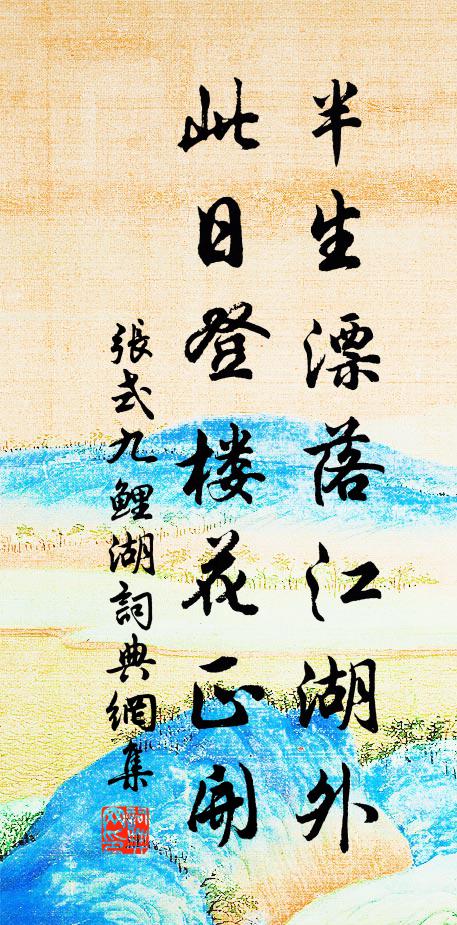 半生漂落江湖外
此日登楼花正開
張式九鲤湖詞典網集